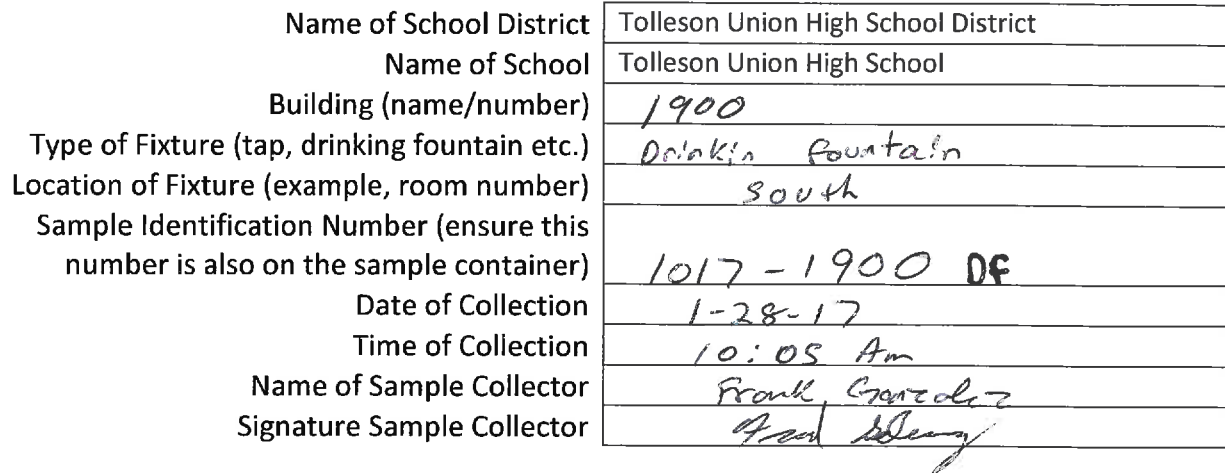 Name of School District Tolleson Union High School District
Name of School Tolleson Union High School
Building (name/number) 1900
Type of Fixture (tap, drinking fountain etc.) Drinkin fountain
Location of Fixture (example, room number) South
Sample Identification Number (ensure this
number is also on the sample container) 1017-1900 DF
Date of Collection 1-28-17
Time of Collection 10:05 Am
Name of Sample Collector Frank Gonzalez
Signature Sample Collector